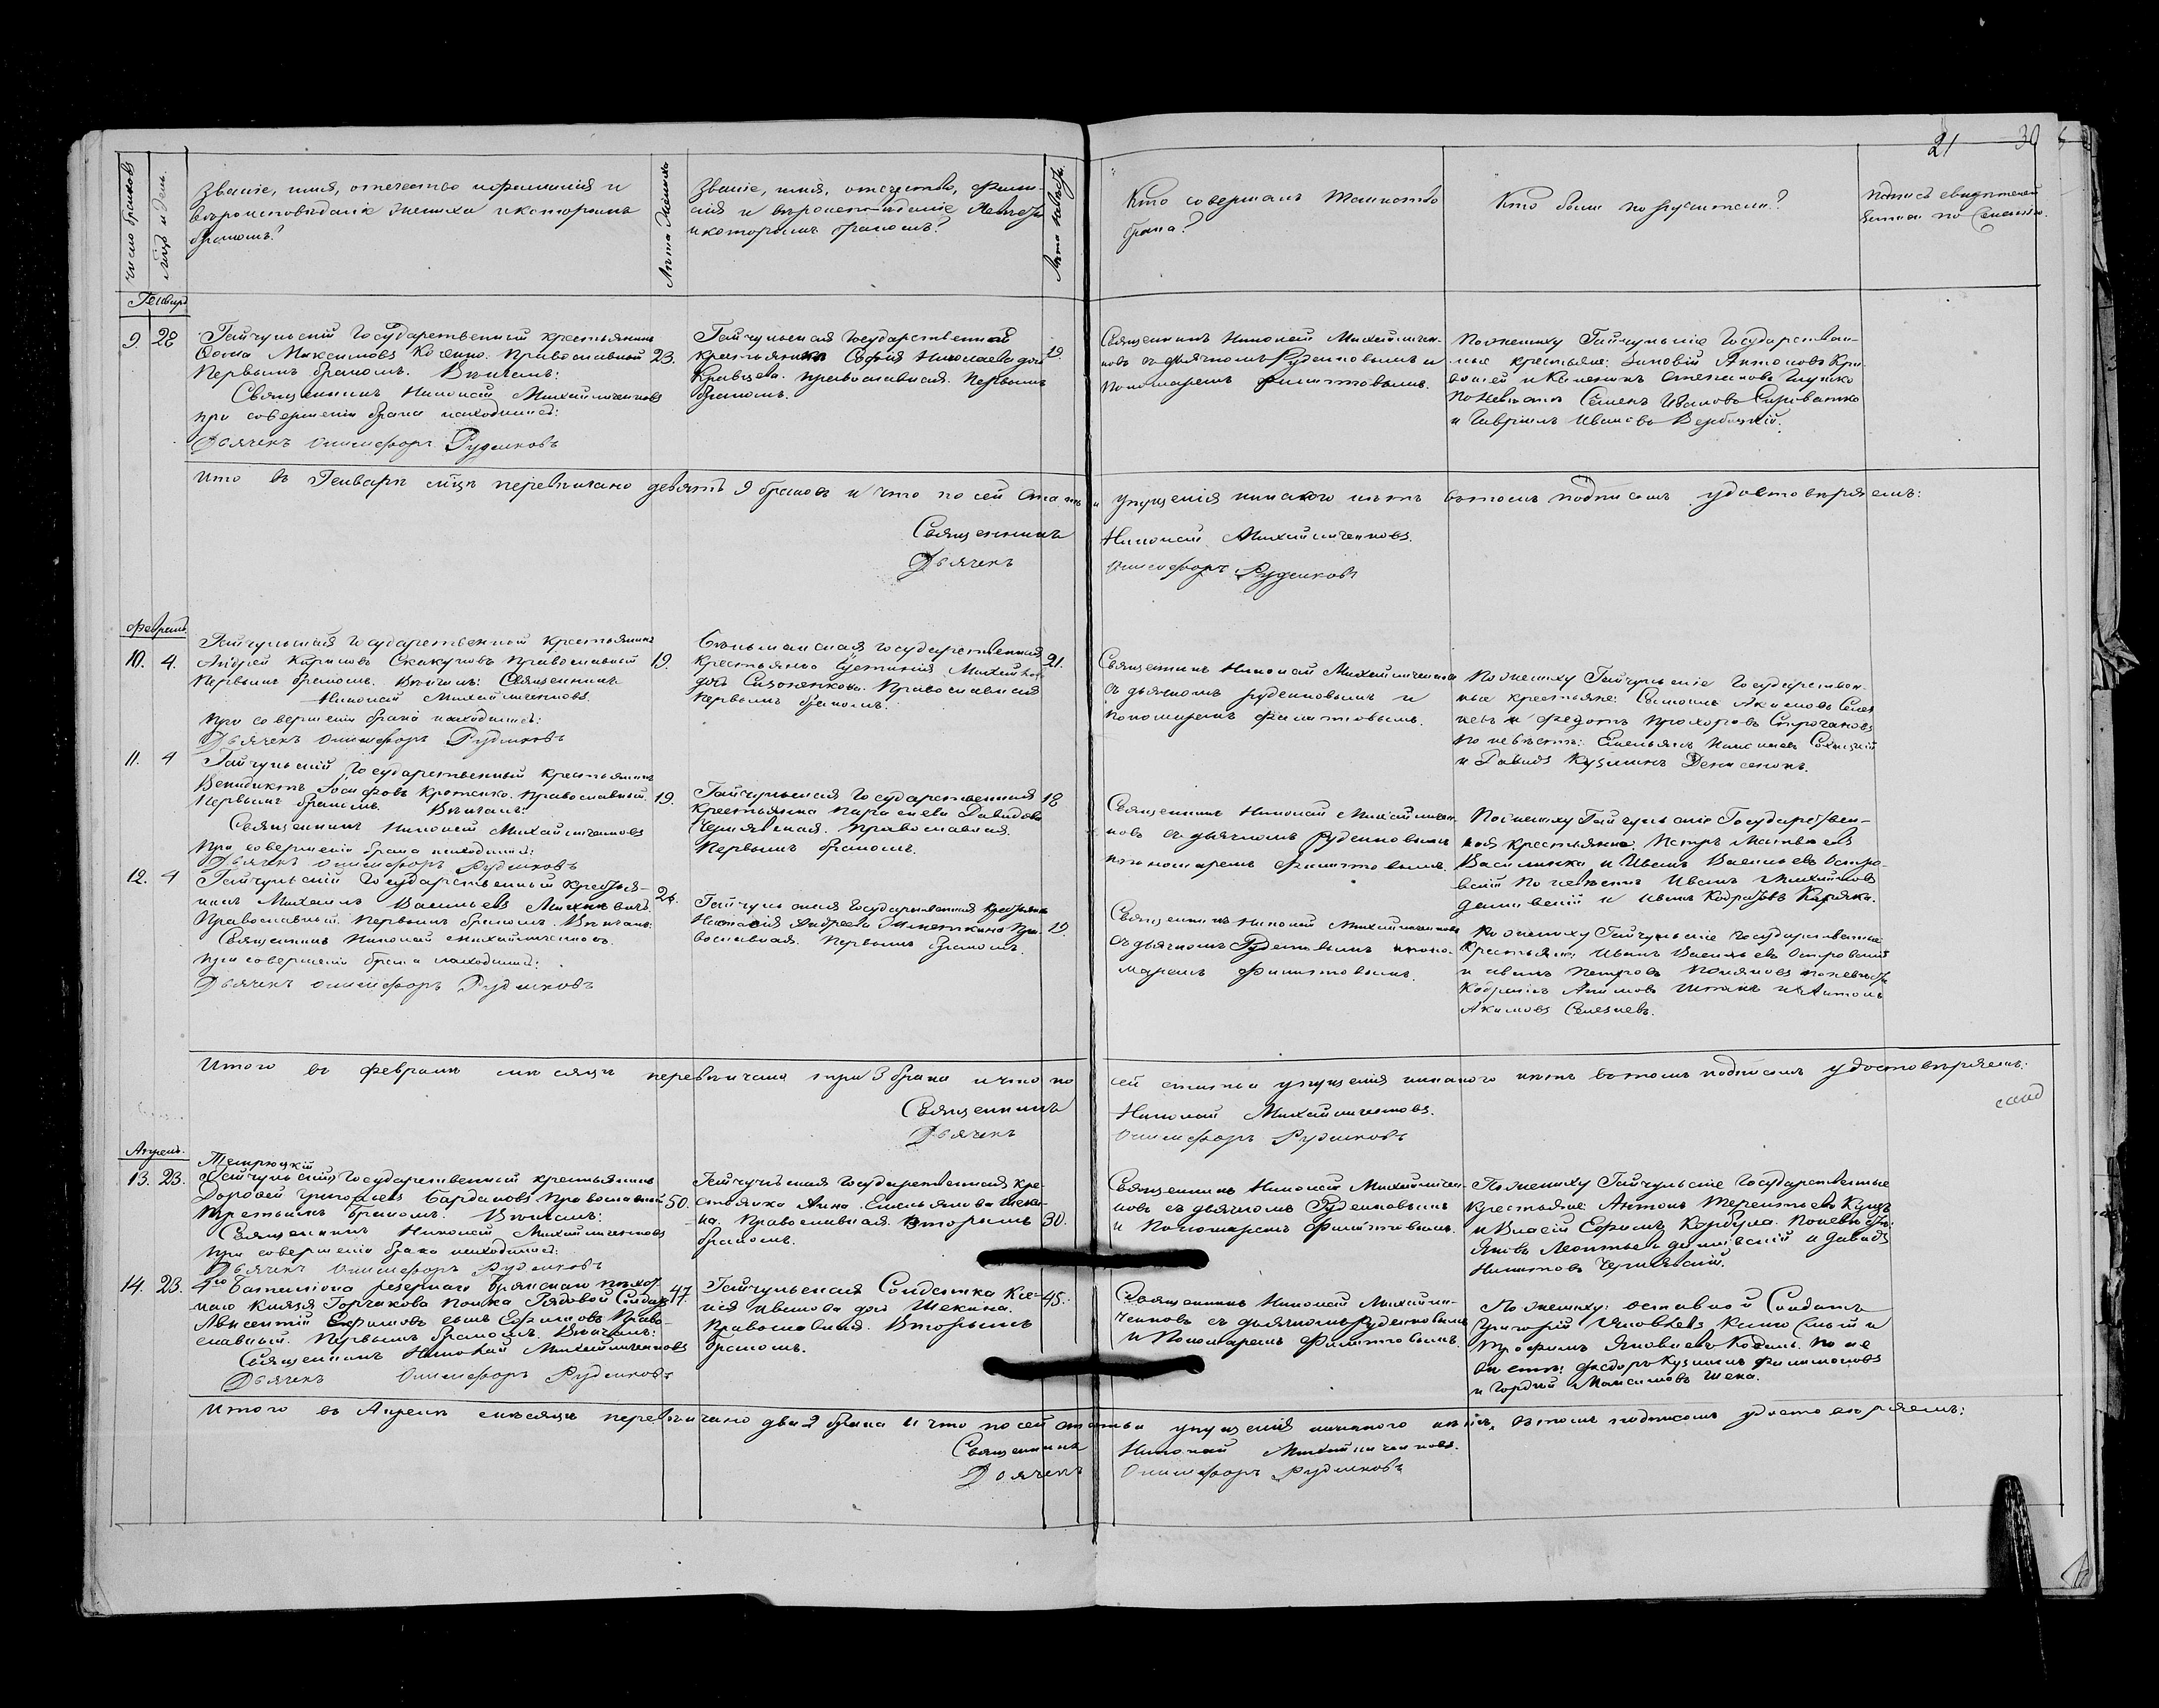 21 30
число браковъ
м̃цъ и день.
Званіе, имя, отечество и фамилія и
вѣроисповѣданіе жениха и которымъ
бракомъ?
Лѣта жениха
Званіе, имя, отечество, фами-
лія и вѣроисповѣданіе Невѣсты
и которымъ бракомъ?
Лѣта невѣсты.
Кто совершалъ Таинство
брака?
Кто были поручители?
Генварь
9. 28
Гайчульскій Государственный крестьянинъ
Фома Максимовъ Коченко. Православный
Первымъ бракомъ. Вѣнчалъ:
Священникъ Николай Михайличенковъ
при совершеніи брака находился:
Дьячекъ Онисифоръ Руденковъ
23.
Гайчульская Государственная
крестьянка София Николаева дочь
Кравцева. Православная. Первымъ
бракомъ.
19.
Священникъ Николай Михайличен-
ковъ съ дьячкомъ Руденковымъ и
Пономаремъ Филитовымъ.
По жениху Гайчульскіе Государствен-
ные крестьяне: Зиновій Антоновъ Кри-
и Степановъ Глушко
По Невѣсте Семенъ Ивановъ Сироватко
и Гавріилъ Ивановъ Вербицкій.
Итого въ Генварѣ м̃цѣ перевѣнчано девять 9 браковъ и что по сей статьи упущенія никакого нѣтъ въ томъ подписомъ удостовѣряемъ:
Священникъ Николай Михайличенковъ.
Дьячекъ Онисифоръ Руденковъ
Февраль.
10. 4.
Гайчульскій Государственный крестьянинъ
Андрей Кириловъ Скакуновъ Православный
Первымъ бракомъ. Вѣнчалъ: Священникъ
Николай Михайличенковъ.
При совершеніи брака находился:
Дьячекъ Онисифоръ Руденковъ
19.
Государственная
крестьянка Устинія Михайлова
дочь Православная
Первымъ бракомъ.
21.
Священникъ Николай Михайличенковъ
съ дьячкомъ Руденковымъ и
пономаремъ Филитовымъ.
По жениху Гайчульскіе Государствен-
ные крестьяне: Акимовъ Селез
невъ и Федотъ Прохоровъ
по невѣсте: Емельянъ
и Давидъ Кузминъ Денисенко.
11. 4
Гайчульскій Государственный крестьянинъ
Венидиктъ Іосифовъ Кротенко. Православный.
Первымъ бракомъ. Вѣнчалъ:
Священникъ Николай Михайличенковъ
При совершеніи брака находился:
Дьячекъ Онисифоръ Руденковъ
19.
Гайчульская Государственная
Крестьянка Параскева Давидова
Чернявская. Православная.
Первымъ бракомъ.
18
Священникъ Николай Михайличен-
ковъ съ дьячкомъ Руденковымъ
и пономаремъ Филитовымъ.
По жениху Гайчульскіе Государствен-
ные крестьяне. Петръ Матвѣевъ
Василинка и Иванъ Васильевъ Остро-
вскій По невѣсте Иванъ Михайловъ
и Иванъ
12. 4
Гайчульскій Государственный крестья-
нинъ Михаилъ Васильевъ
Православный. Первымъ бракомъ. Вѣнчалъ:
Священникъ Николай Михайличенковъ.
при совершеніи брака находился:
Дьячекъ Онисифоръ Руденковъ
24.
Гайчульская Государственная Крестьянка
Настасія Андреева Пра-
вославная. Первымъ бракомъ.
19.
Священникъ Николай Михайличенковъ
съ дьячкомъ Руденковымъ и поно-
маремъ Филитовымъ.
По жениху Гайчульскіе Государственные
Крестьяне Иванъ Васильевъ Островскій
и Иванъ Петровъ Поляковъ по невѣсте
Акимовъ и Антонъ
Акимовъ Селезневъ.
Итого въ Февралѣ мѣсяцѣ перевѣнчано три 3 брака и что по сей статьи упущенія никакого нѣтъ въ томъ подписомъ удостовѣряемъ:
Священникъ Николай Михайличенковъ.
Дьячекъ Онисифоръ Руденковъ
Апрель.
13. 23.
Темрюцкій
Гайчульскій Государственный крестьянинъ
Дорофей Григорьевъ Бардаковъ Православный
Третьимъ бракомъ. Вѣнчалъ:
Священникъ Николай Михайличенковъ
При совершеніи брака находился:
Дьячекъ Онисифоръ Руденковъ
50.
Гайчульская Государственная кре-
стьянка Анна Емельянова Шеки-
на. Православная. Вторымъ
бракомъ.
30.
Священникъ Николай Михайличен-
ковъ съ дьячкомъ Руденковымъ
и Пономаремъ Филитовымъ.
По жениху Гайчульскіе Государственные
Крестьяне: Антонъ Терентьевъ Куцъ
и Власій Ефимъ По невѣсте:
Яковъ Леонтьевъ и Давидъ
Никитовъ Чернявскій.
14. 23.
4го Баталіона резервнаго Брянскаго пѣхот
наго Князя Горчакова полка Рядовой Солдатъ
Авксентій Ефимовъ сынъ Ефимовъ Право-
славный. Первымъ бракомъ. Вѣнчалъ:
Священникъ Николай Михайличенковъ
Дьячекъ Онисифоръ Руденковъ
47.
Гайчульская Солдатка Ксе-
нія Иванова дочь Шекина.
Православная. Вторымъ
бракомъ.
45.
Священникъ Николай Михайли-
ченковъ съ дьячкомъ Руденковымъ
и Пономаремъ Филитовымъ.
По жениху: оставной Солдатъ
Григорій Яковлевъ и
Трофимъ Яковлевъ по не
вѣсте: Федоръ Кузминъ Филимоновъ
и Гордій Максимовъ Шека.
Итого въ Апрелѣ мѣсяцѣ перевѣнчано два 2 брака и что по сей статьи упущенія никакого нѣтъ, въ томъ подписомъ удостовѣряемъ:
Священникъ Николай Михайличенковъ.
Дьячекъ Онисифоръ Руденковъ